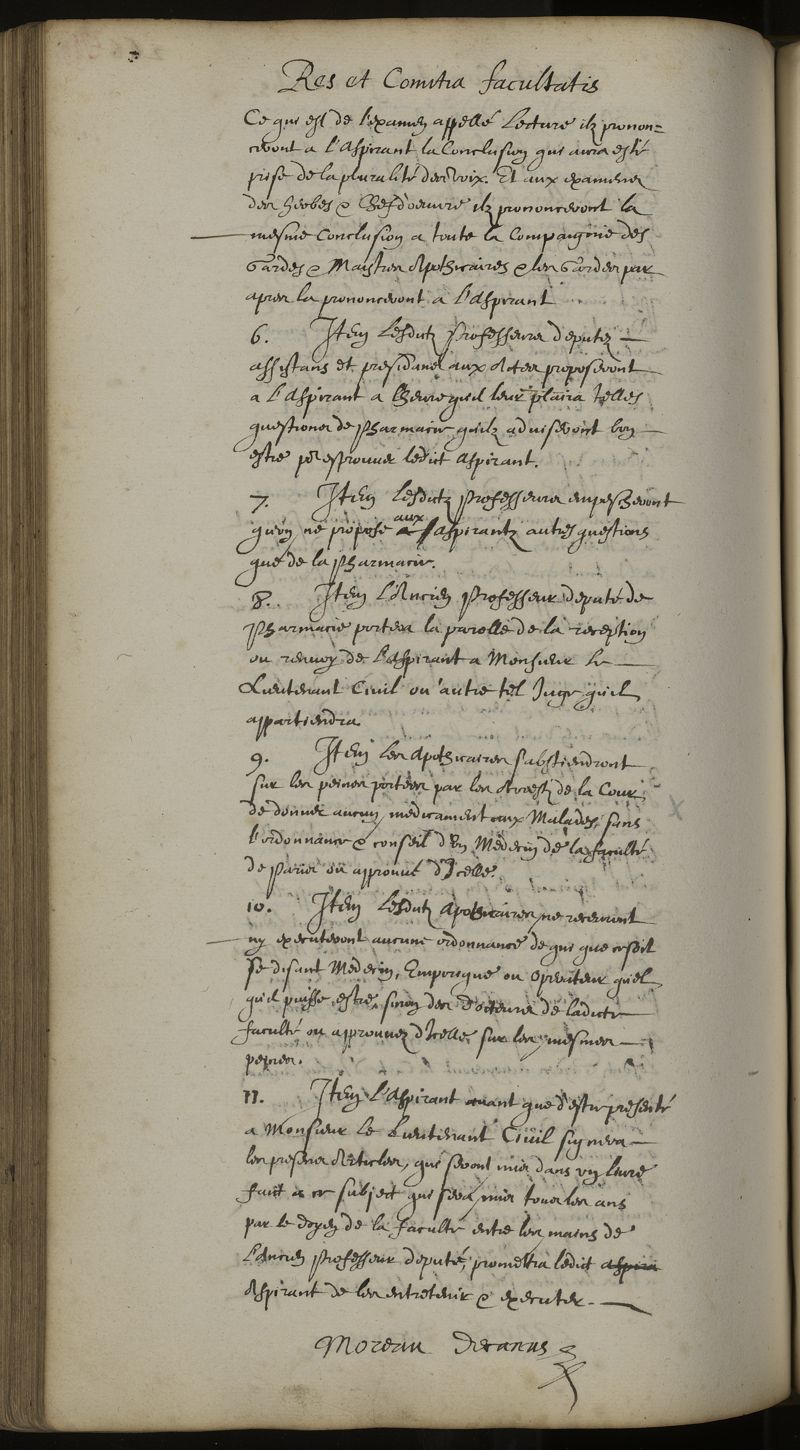 Res et Comitia facultatis
Ce qui est de l'examen appellé Lecture ilz pronon=
ceront a l'Aspirant la Conclusion qui aura esté
prise de la pluralité des voix. Et aux examens
des herbes & Chefdoeuvre ilz prononceront la
mesme Conclusion a toute la Compaignie des
Gardes & Maistres Apothicaires & les Gardes par
apres la prononceront a l'Aspirant
6. Item Lesdictz Professeurs deputez
assistans et presidans aux Actes proposeront
a l'Aspirant a l'heure quil leur plaira telles
questions de Pharmacie quilz adviseront bon
estre pour esprouver ledict Aspirant.
7. Item Lesdictz Professeurs empescheront
qu'on ne propose aux aspirantz autres questions
que de la Pharmacie.
8. Item L'Ancien Professeur deputé de
Pharmacie portera la parolle de la reception
ou renvoy de l'Aspirant a Monsieur le
Lieutenant Civil ou autre tel Juge qu'il
appartiendra
9. Item les Apothicaires s'abstiendront
sur les peines portées par les Arrestz de la Cour
de donner aucun médicament aux Malades, sans
l'ordonnance & conseil d'un Médecin de la faculté
de Paris ou approuvé d'Icelle.
10. Item Lesdictz Apothicaires ne recevront
ny executeront aucune ordonnance de qui que ce soit
se disant Médecin, Empirique ou Operateur quel
quil puisse estre, sinon des docteurs de ladicte
faculté ou approuvez d'Icelle, sur les mesmes
peines.
11. Item l'Aspirant avant que d'estre presenté
a Monsieur le Lieutenant Civil signera
les presens Articles, qui seront mis dans un livre
faict a ce subject qui sera mis tous les ans
par le doyen de la faculté entre les mains de
l'Ancien Professeur deputé, promettra ledict aspira
Aspirant de les entretenir & executer.
Moreau Decanus